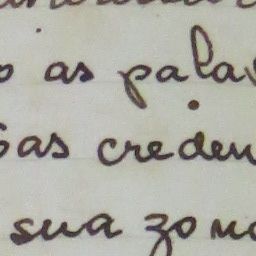 o as pala
as creden
sua zona